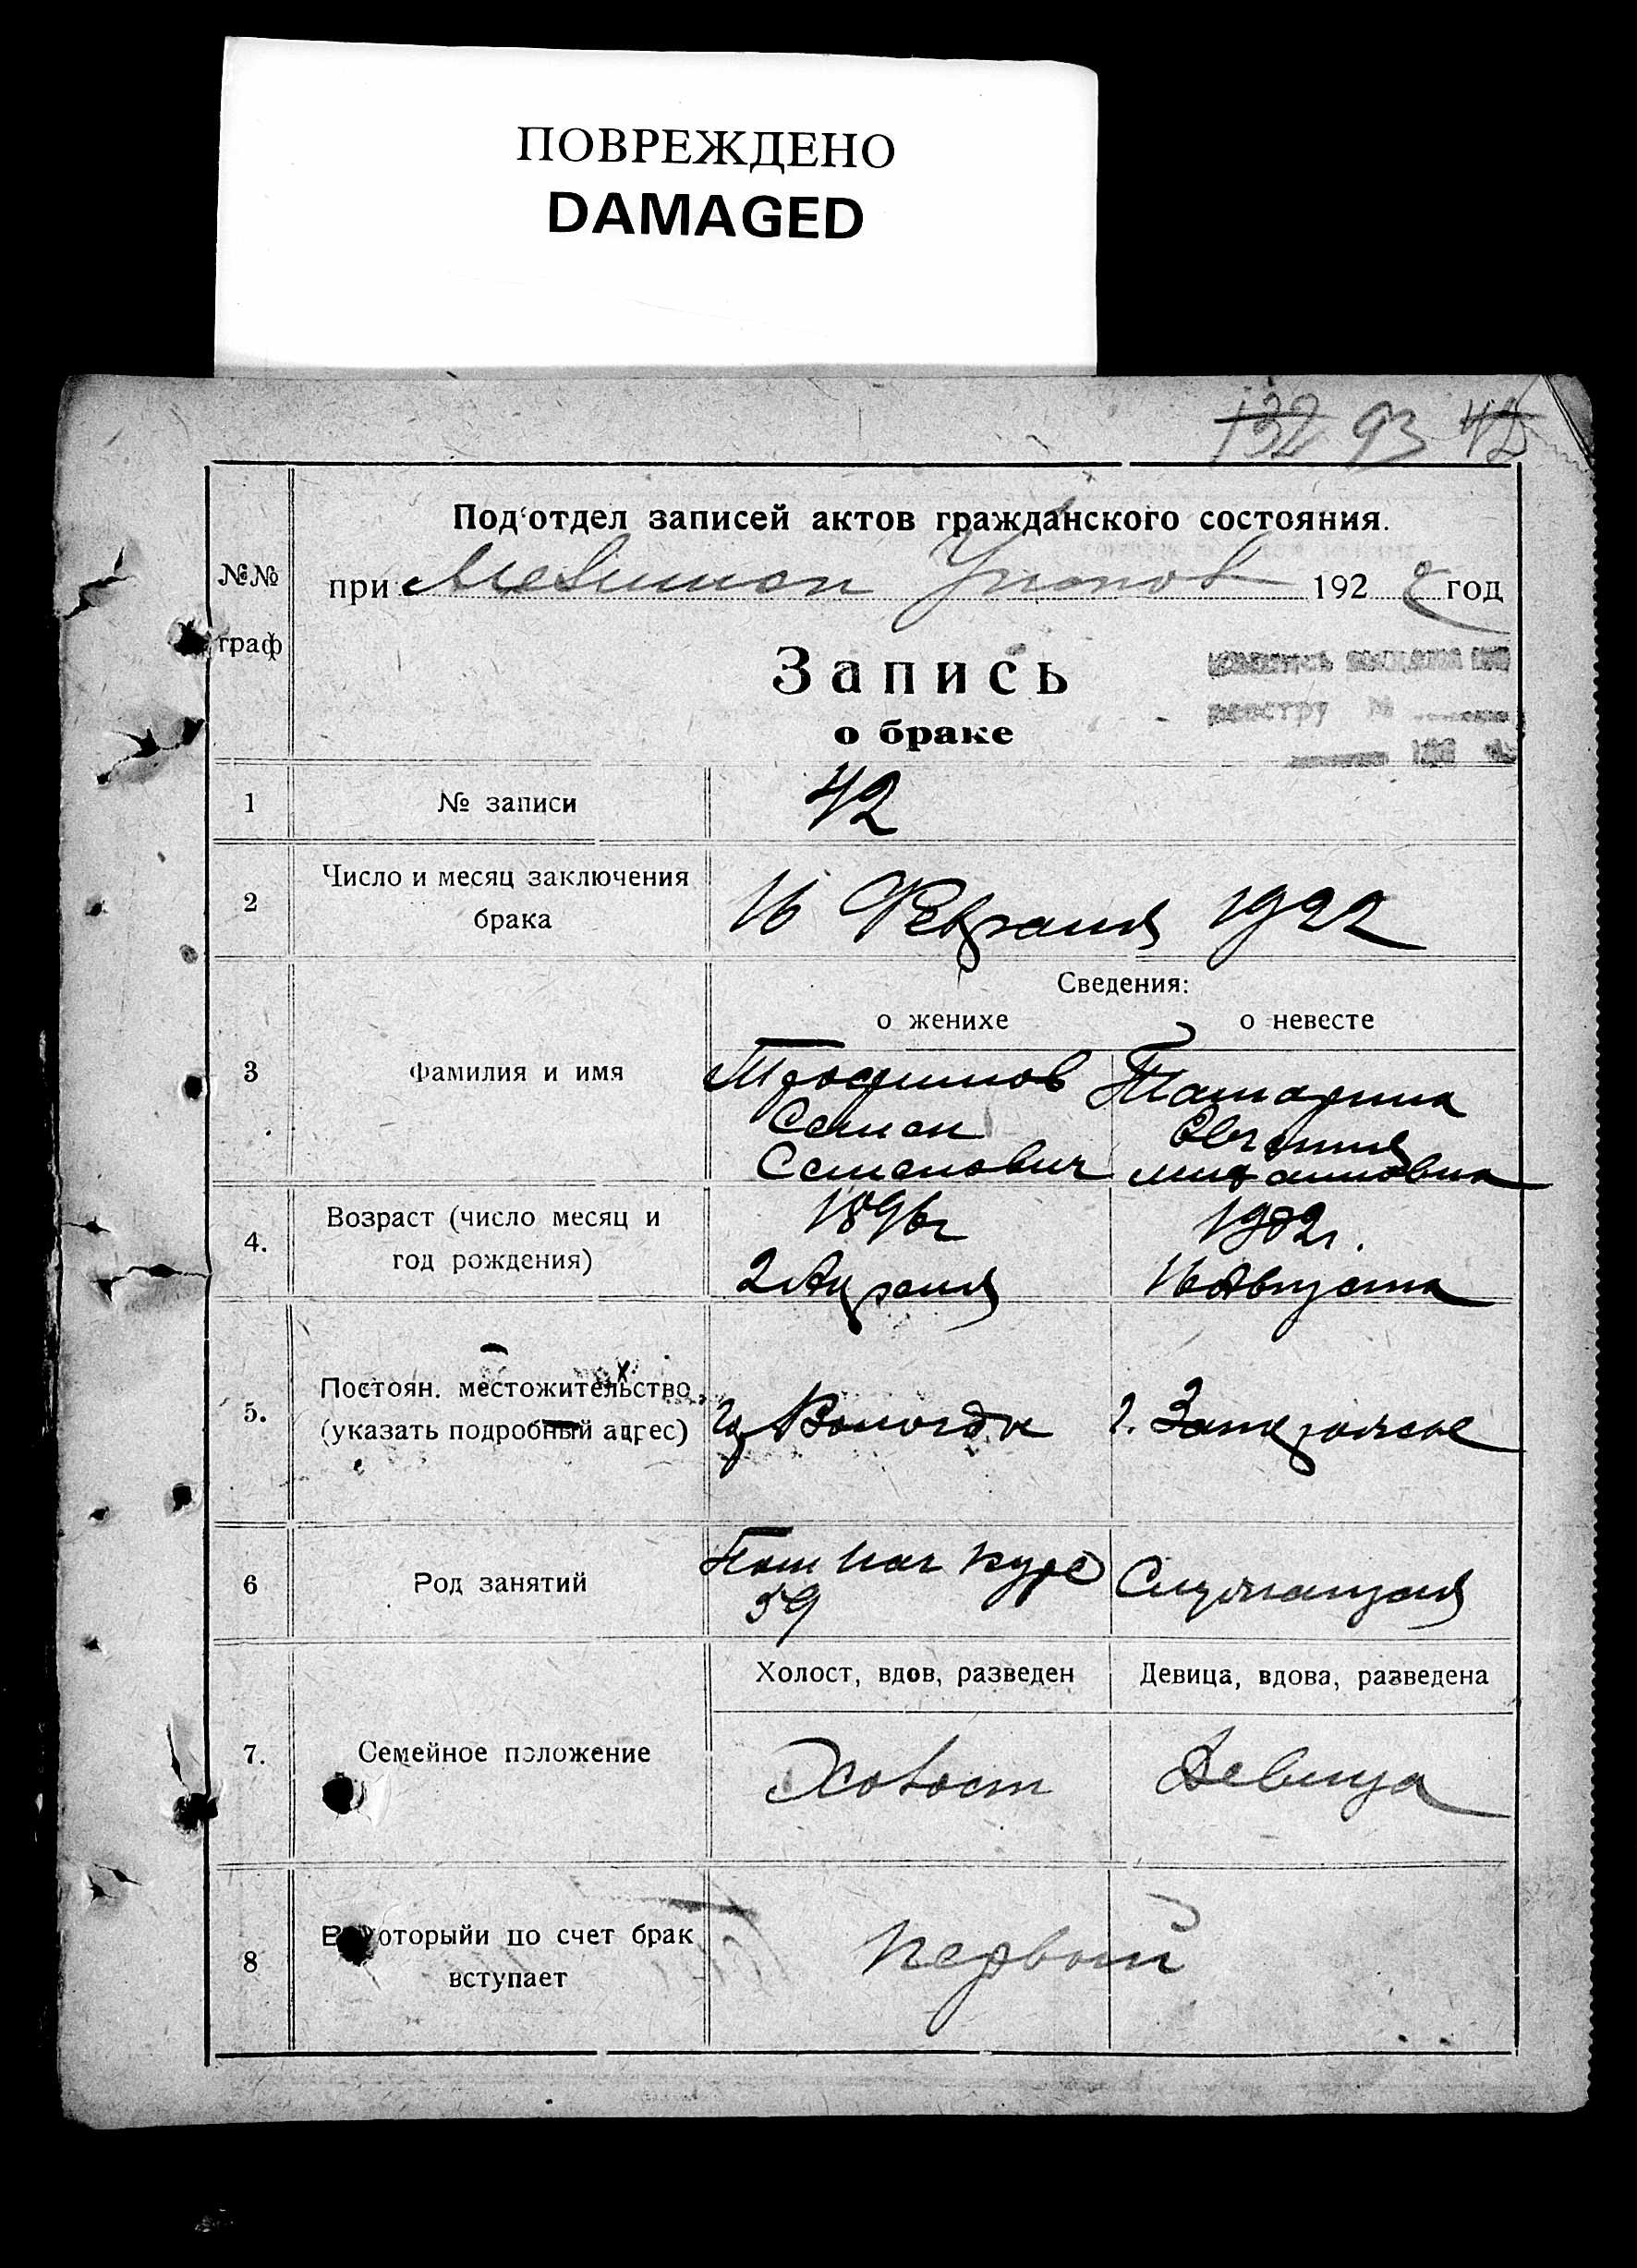 ПОВРЕЖДЕНО
DAMAGED
132 93 42
Под'отдел записей актов гражданского состояния.
№№ граф
при 192 2 год
Запись
о браке
1 № записи 42
2 Число и месяц заключения брака 16 Февраля 1922
Сведения:
о женихе о невесте
3 Фамилия и имя
Трофимов Татарина
Семен Евгения
Семенович
4. Возраст (число месяц и год рождения)
1896г 1902г.
2 Апреля 16 Августа
5. Постоян. местожительство (указать подробный адрес)
Вологда г. Запорожье
6 Род занятий
Пом Нач курс Служащая
59
Холост, вдов, разведен Девица, вдова, разведена
7. Семейное положение Холост Девица
8 которыйи по счет брак вступает первый